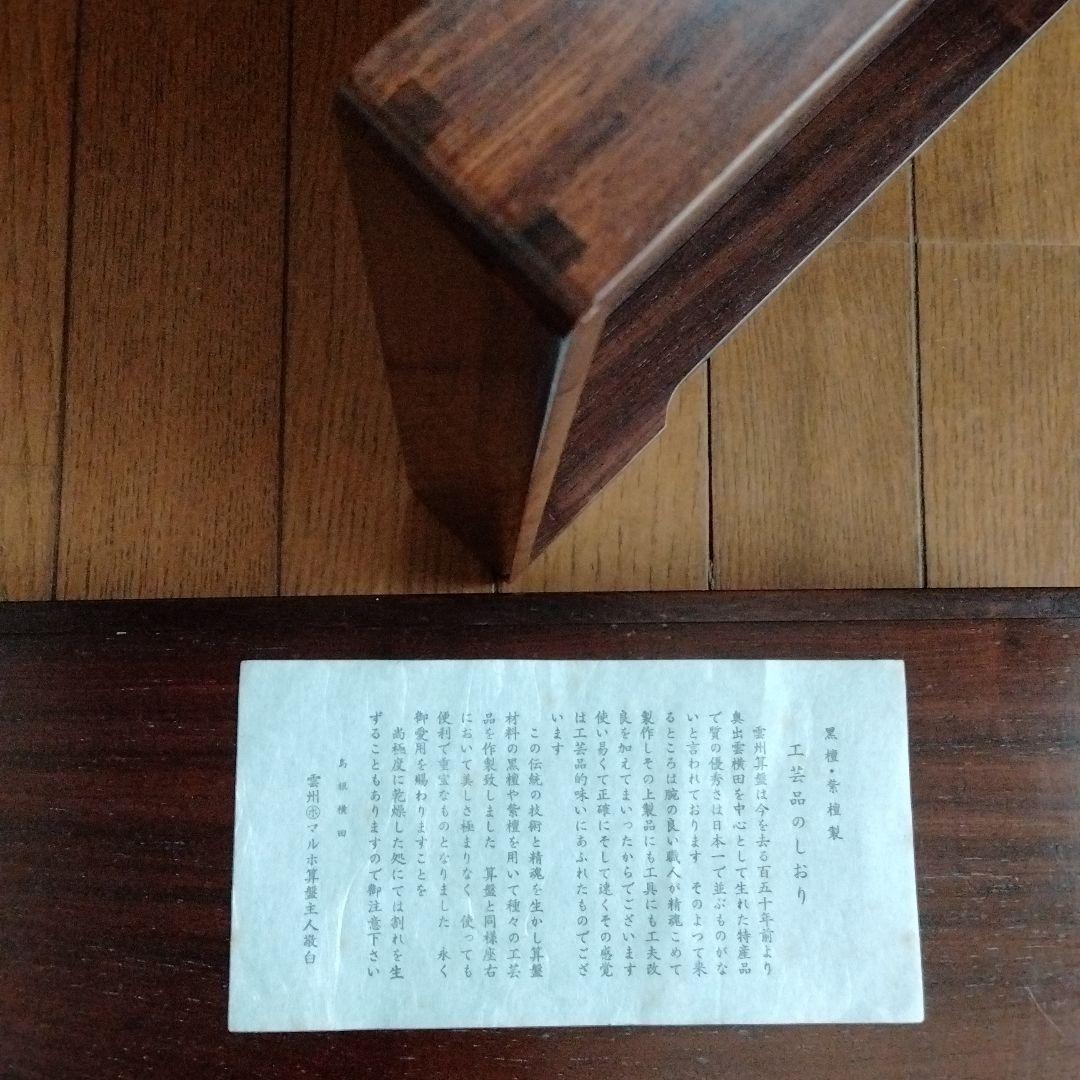 黒檀・紫檀製
工芸品のしおり
雲州算盤は今を去る百五十年前より
奥出雲横田を中心として生れた特産品
で質の優秀さは日本一で並ぶものがな
いと言われております そのよつて来
るところは腕の良い職人が精魂こめて
製作しその上製品にも工具にも工夫改
良を加えてまいったからでございます
使い易くて正確にそして速くその感覚
は工芸品的味いにあふれたものでござ
います
この伝統の技術と精魂を生かし算盤
材料の黒檀や紫檀を用いて種々の工芸
品を作製致しました 算盤と同様座右
において美しさ極まりなく 使っても
便利で重宝なものとなりました 永く
御愛用を賜わりますことを
尚極度に乾燥した処にては割れを生
ずることもありますので御注意下さい
島根横田
雲州㋭マルホ算盤主人敬白